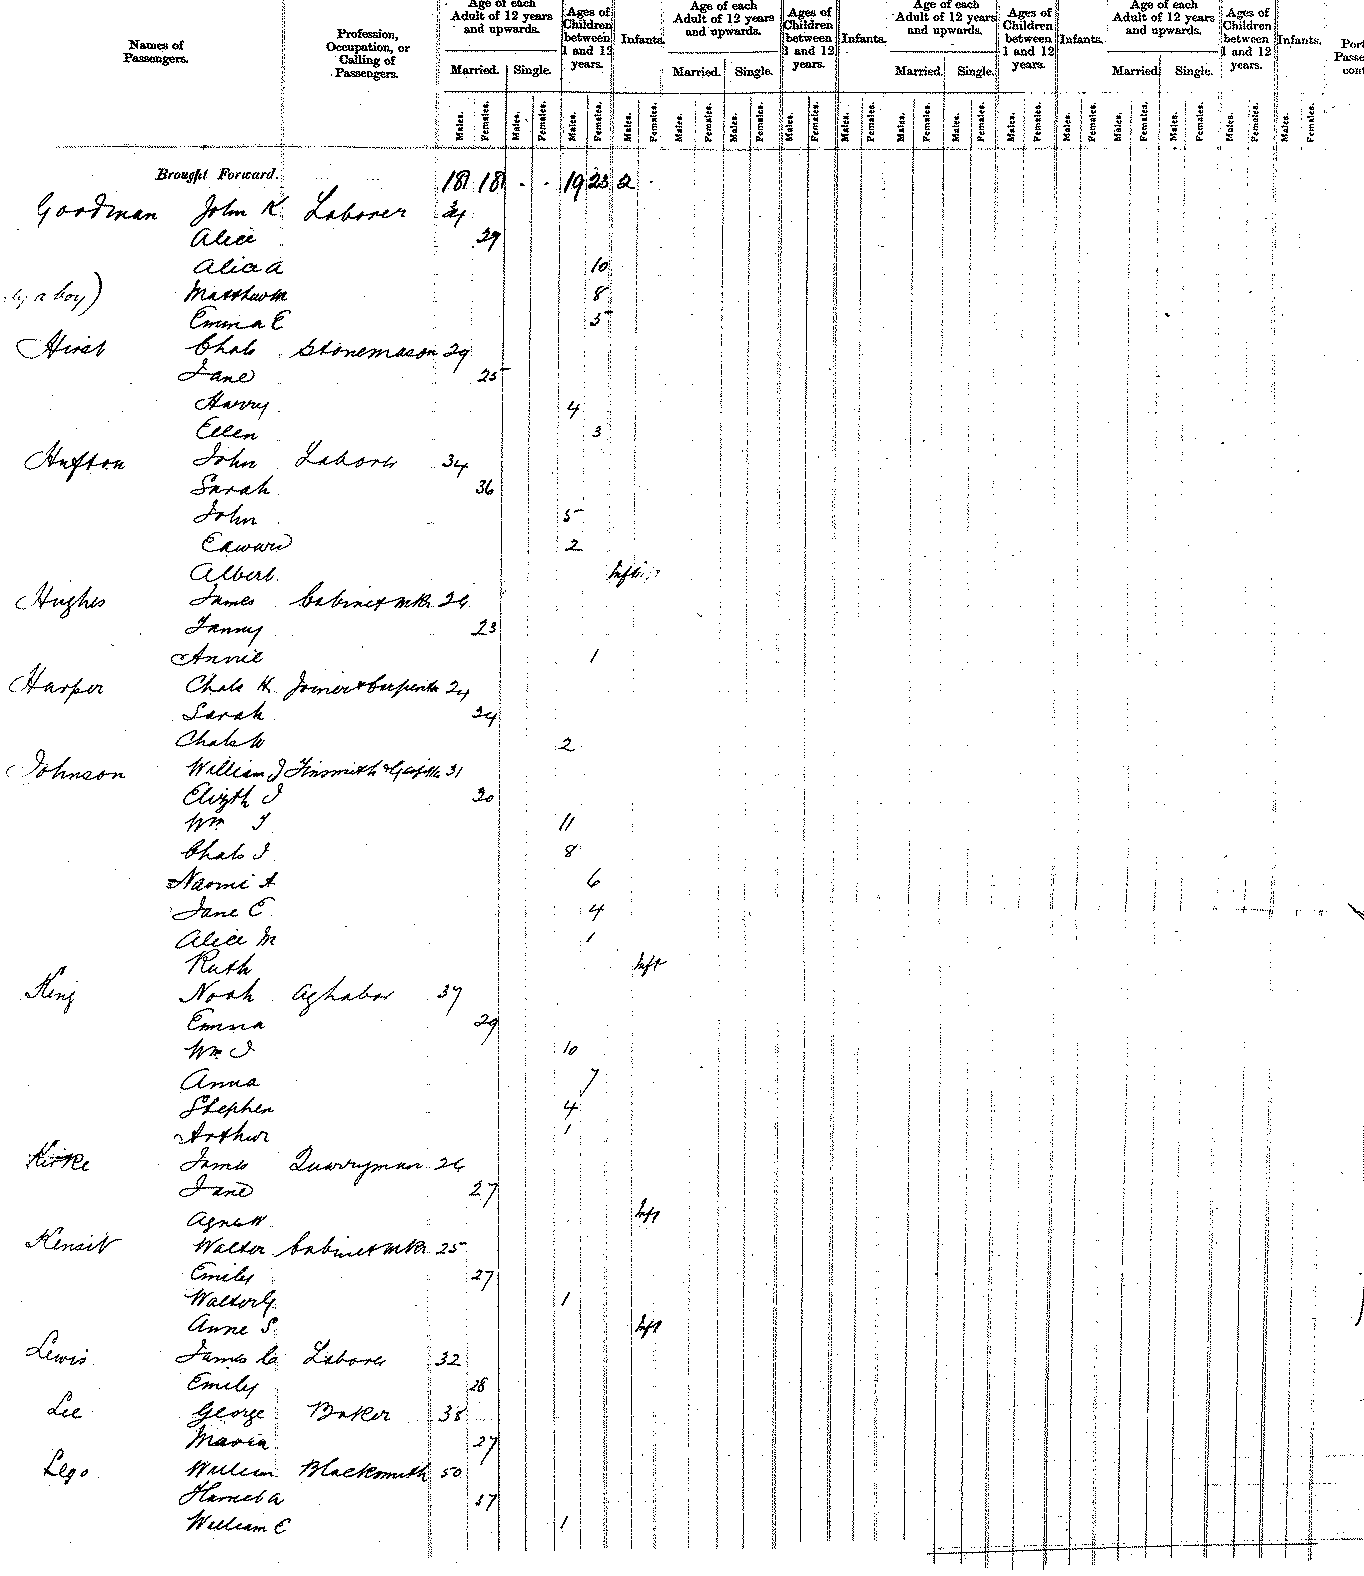 Names of Passengers. Profession, Occupation, or Calling of Passengers. Age of each Adult of 12 years and upwards. Ages of Children between 1 and 12 years. Infants. Age of each Adult of 12 years and upwards. Ages of Children between 1 and 12 years. Infants. Age of each Adult of 12 years and upwards. Ages of Children between 1 and 12 years. Infants. Age of each Adult of 12 years and upwards. Ages of Children between 1 and 12 years. Infants.
Married. Single. Married. Single. Married. Single. Married. Single.
Males. Females. Males. Females. Males. Females. Males. Females. Males. Females. Males. Females. Males. Females. Males. Females. Males. Females. Males. Females. Males. Females. Males. Females. Males. Females. Males. Females. Males. Females. Males. Females.
Brought Forward. 18 18 . . 19 23 2 .
Goodman John K Laborer
Alice 29
Alice A 10
a boy) Matthew M 8
Emma E 5
Hirst Chas Stonemason 29
Jane 25
Harry 4
Ellen 3
Hufton John Laborer 34
Sarah 36
John 5
Edward 2
Albert. Inft
Hughes James Cabinet Mkr 26
Fanny 23
Annie 1
Harper Chas H Joiner & Carpenter 24
Sarah 24
Chas W 2
Johnson William J Tinsmith & 31
Elizth J 30
Wm J 11
Chas J 8
Naomi A 6
Jane E 4
Alice M 1
Ruth Inft
King Noah Ag labor 37
Emma 29
Wm J 10
Anna 7
Stephen 4
Arthur 1
Kirke James Quarryman 26
Jane 27
Agnes W Inft
Kensit Walter Cabinet Mkr 25
Emily 27
Walter G. 1
Anne S. Inft
Lewis James Laborer 32
Emily 28
Lee George Baker 38
Maria 27
Lego William Blacksmith 50
Harriet A 37
William E 1